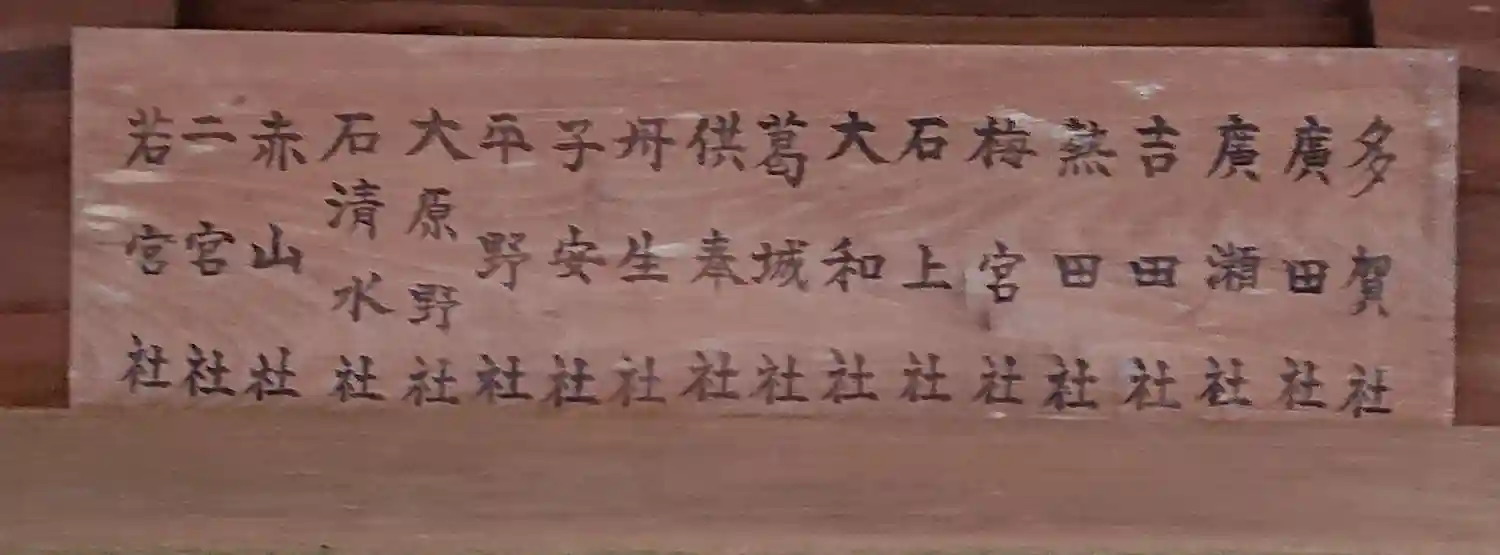 多賀社
廣田社
廣瀬社
吉田社
熱田社
梅宮社
石上社
大和社
葛城社
供奉社
丹生社
子安社
平野社
大原野社
石清水社
赤山社
二宮社
若宮社